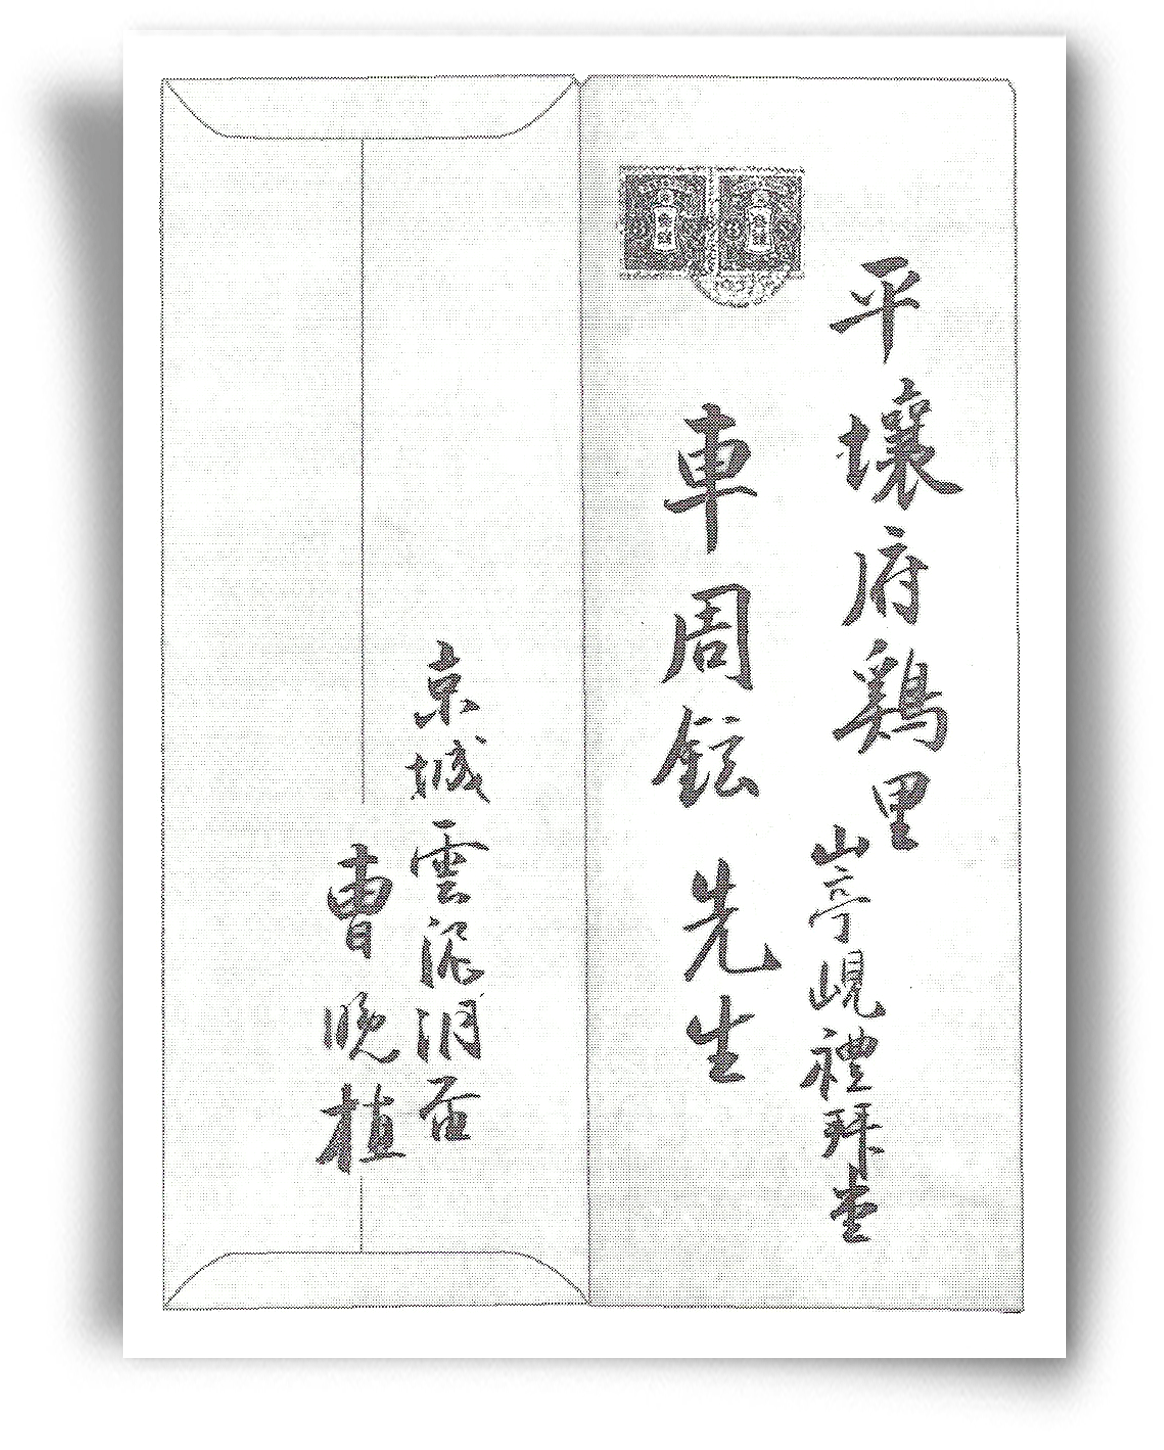 平壤府鷄里
山亭峴禮拜堂
車周鉉 先生
京城雲泥洞
曺晩植